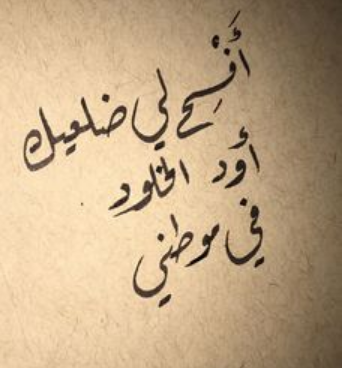 أَفْسِح لي ضلعيك
أود الخلود
في موطني